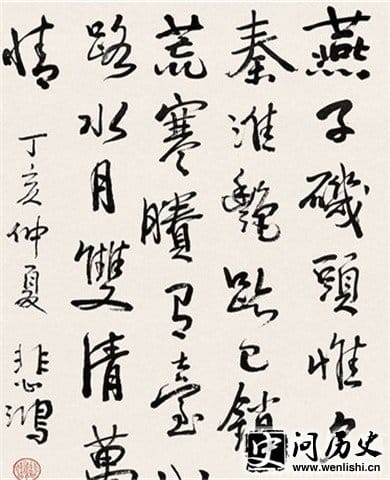 燕子磯頭惟夕
秦淮艷跡已銷
荒寒賸有臺
路水月雙清萬
情
丁亥仲夏 悲鴻
问历史
www.wenlishi.cn